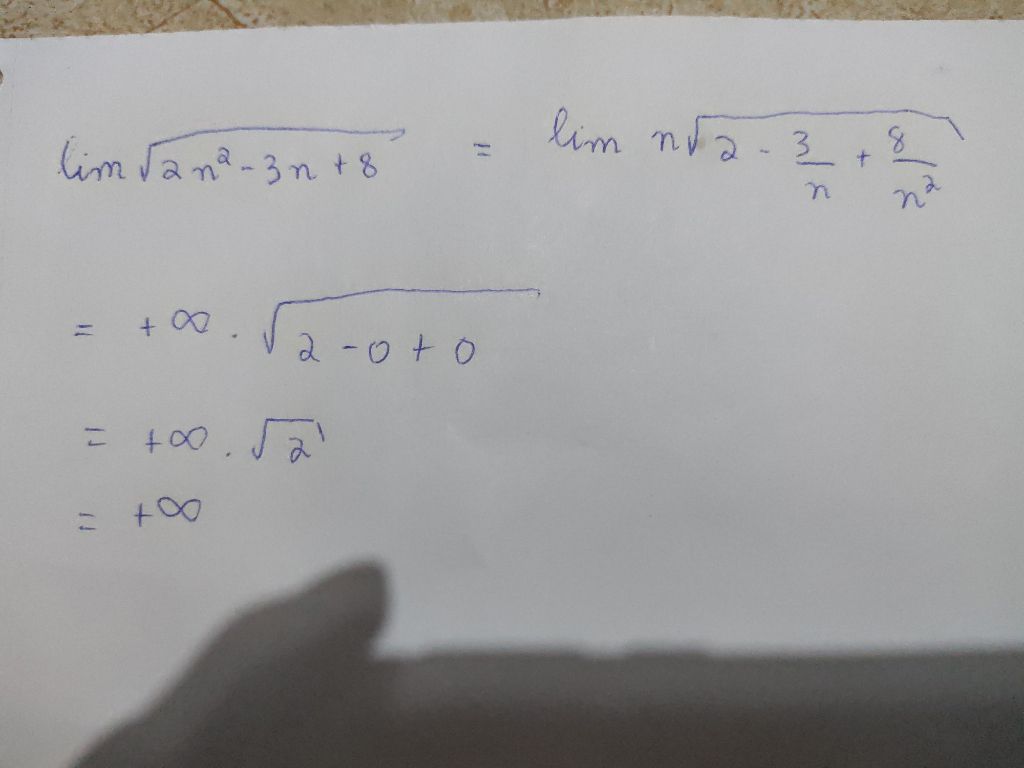 lim √(2n² - 3n + 8) = lim n√(2 - 3/n + 8/n²)
= +∞ . √(2 - 0 + 0)
= +∞ . √2
= +∞